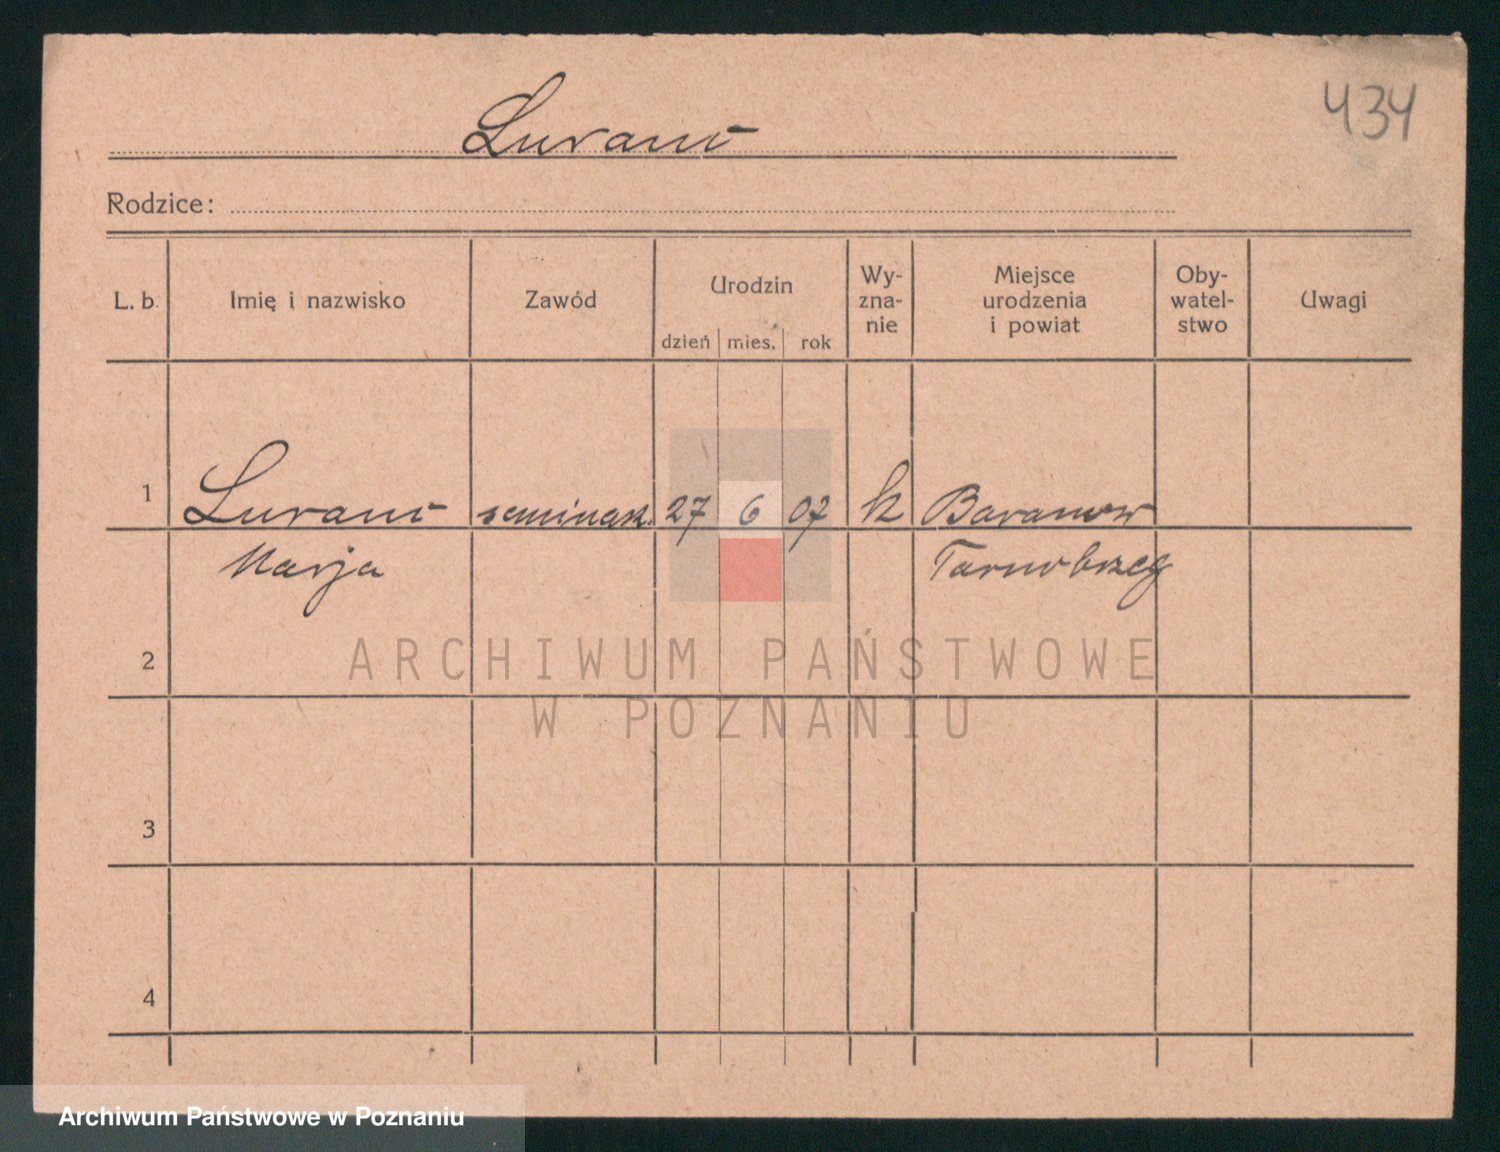 434
Luranc
Rodzice:
L. b. Imię i nazwisko Zawód Urodzin dzień mies. rok Wy-zna-nie Miejsce urodzenia i powiat Oby-watel-stwo Uwagi
1 Luranc seminarz. 27 6 07 k Baranow
Marja Tarnobrzeg
2
ARCHIWUM PAŃSTWOWE
W POZNANIU
3
4
Archiwum Państwowe w Poznaniu